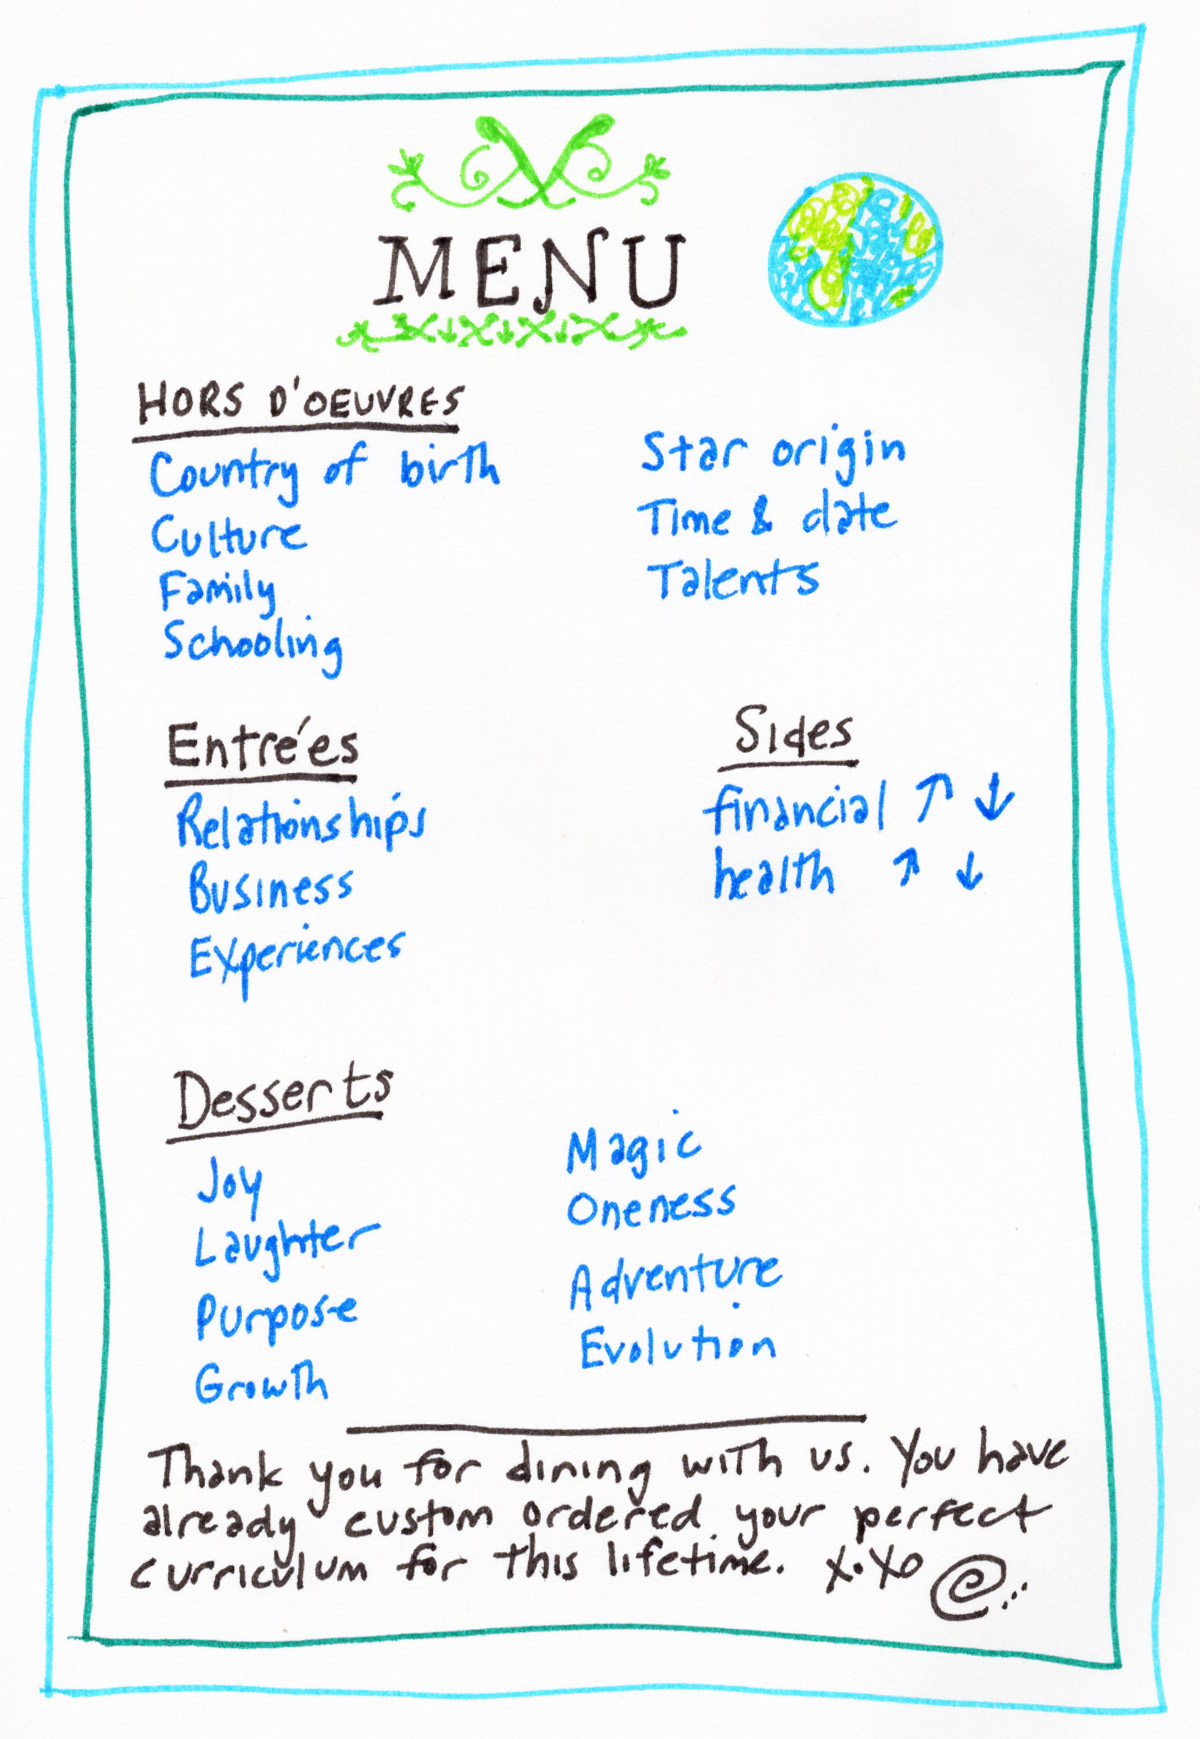 MENU
HORS D'OEUVRES
Country of birth
Culture
Family
Schooling
Star origin
Time & date
Talents
Entrées
Relationships
Business
Experiences
Sides
financial ↑ ↓
health ↑ ↓
Desserts
Joy
Laughter
Purpose
Growth
Magic
Oneness
Adventure
Evolution
Thank you for dining with us. You have
already custom ordered your perfect
curriculum for this lifetime. x.xo